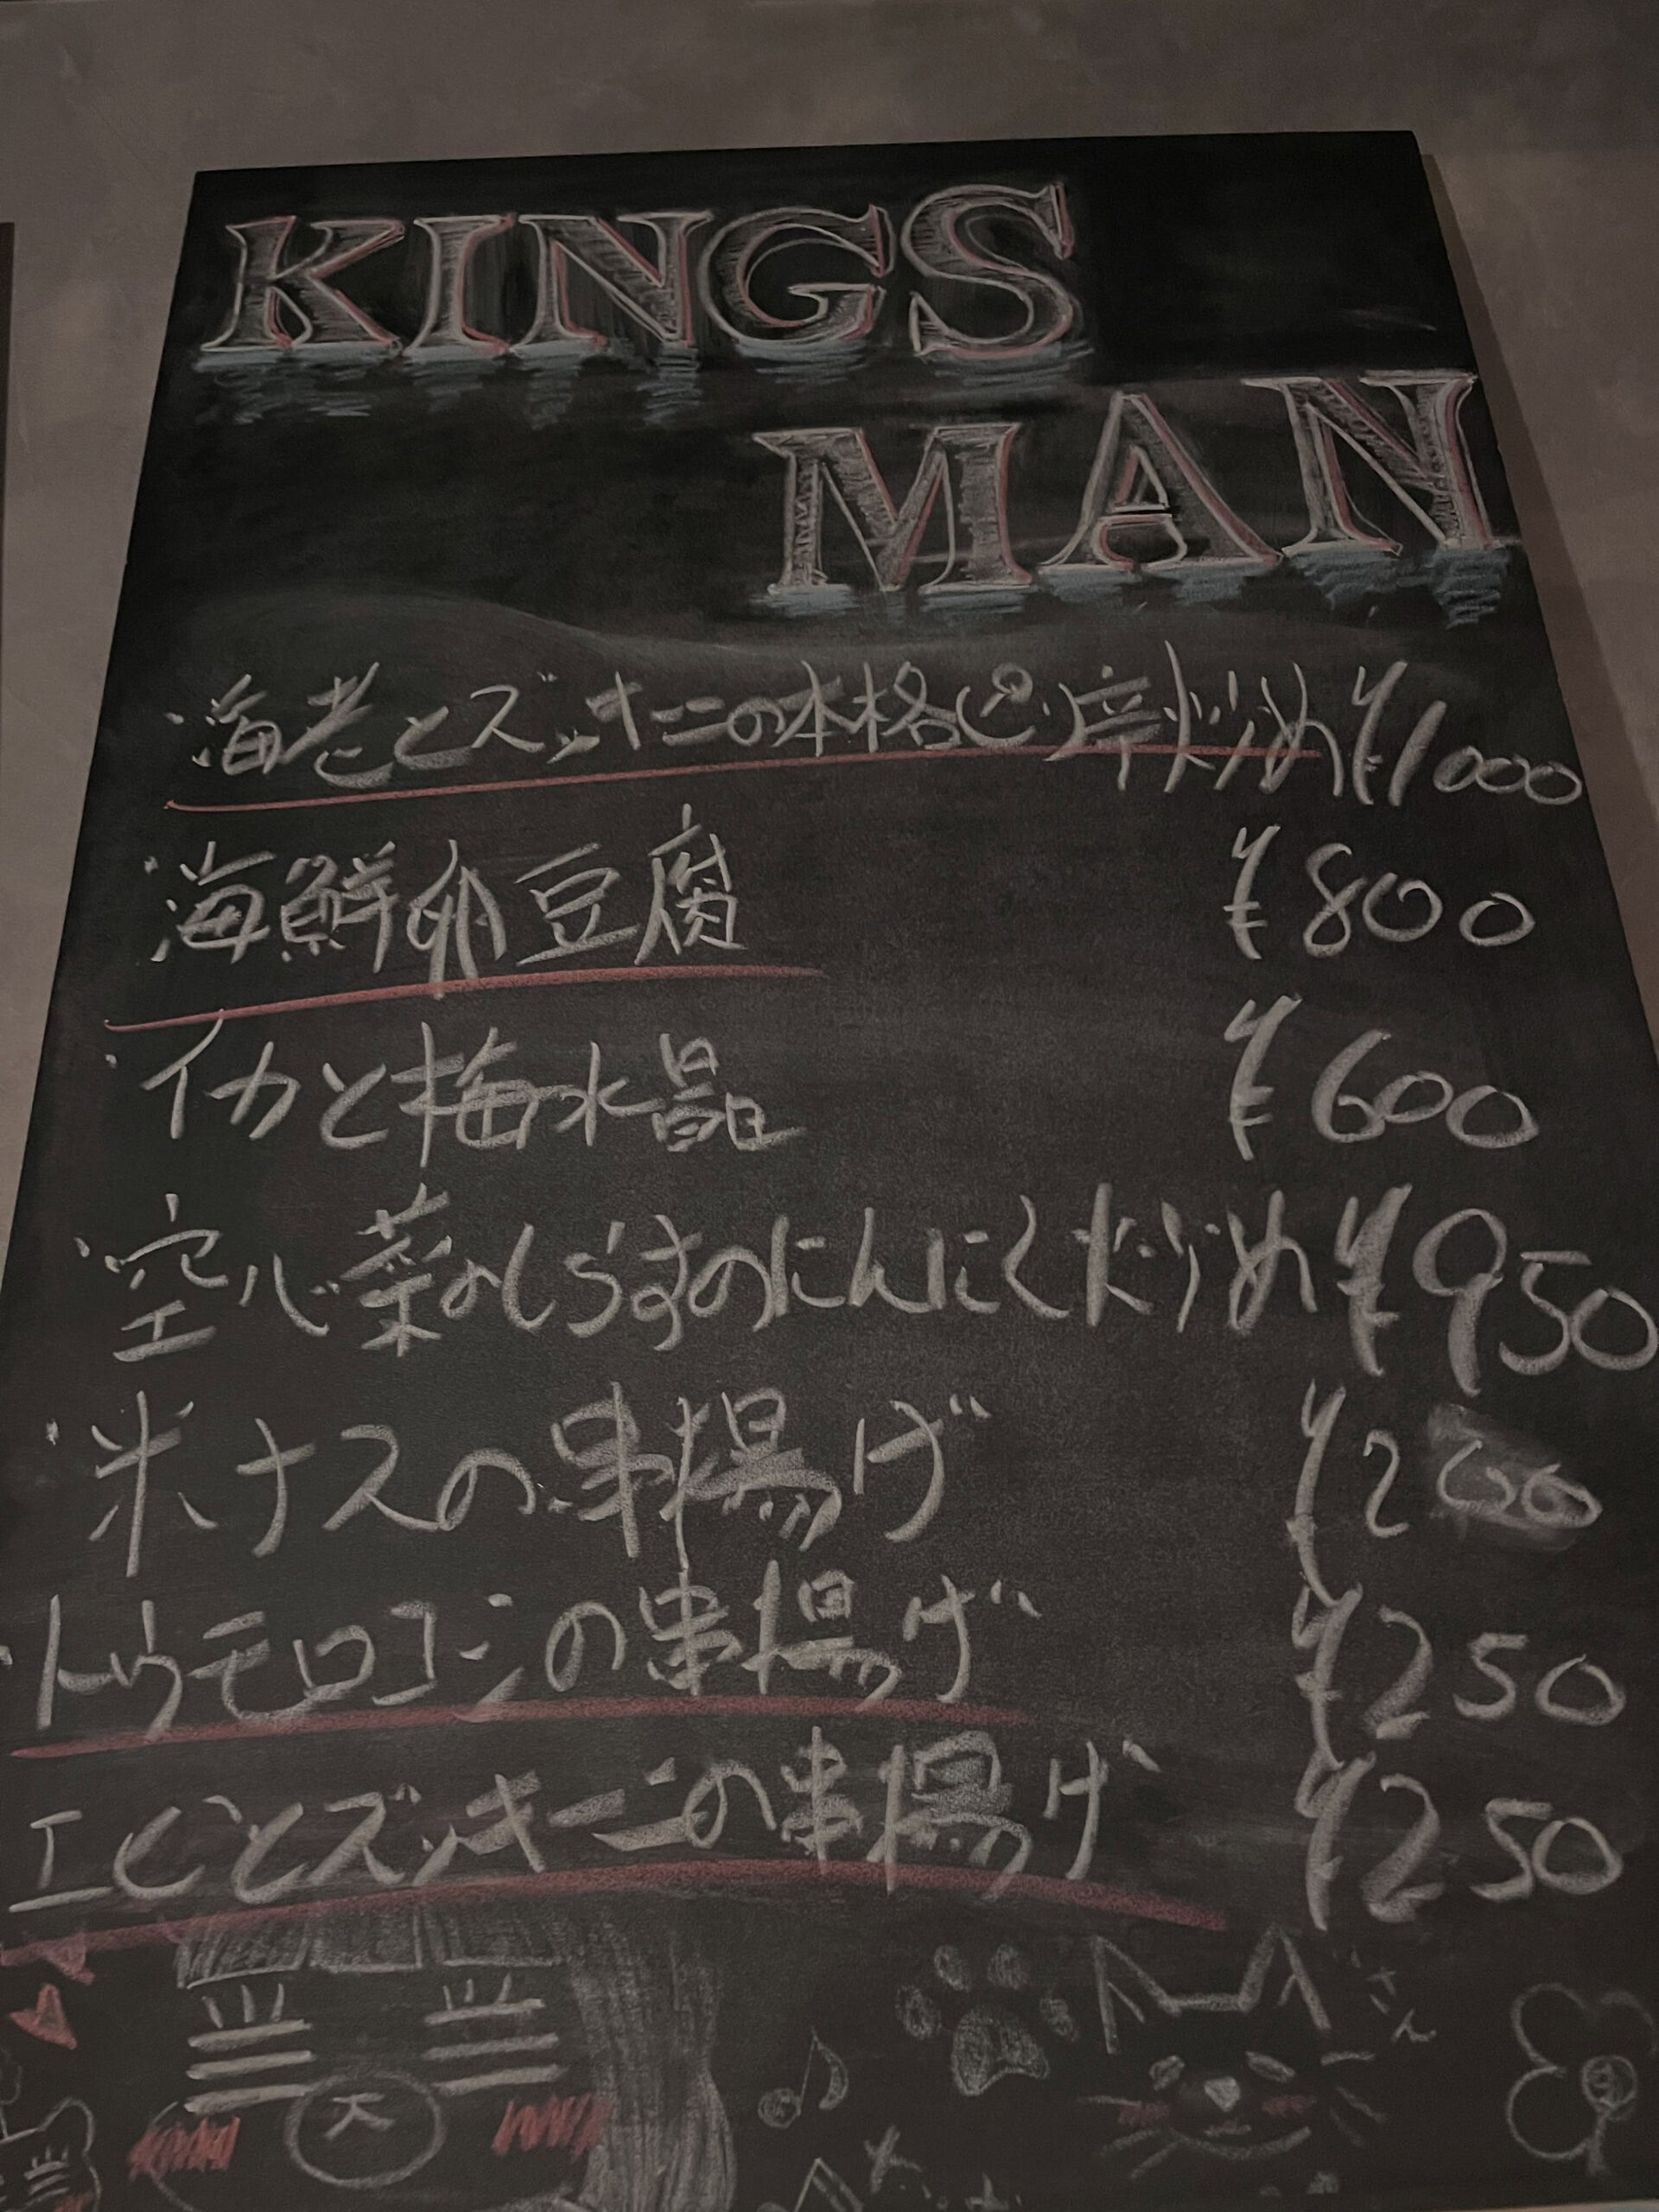 KINGS
MAN
・海老とズッキーニの本格(ピ)辛炒め ¥1000
・海鮮卵豆腐 ¥800
・イカと梅水晶 ¥600
・空心菜のしらすのにんにく炒め ¥950
・米ナスの串揚げ ¥200
・トウモロコシの串揚げ ¥250
エビとズッキーニの串揚げ ¥250
さん